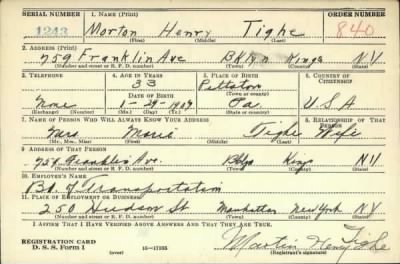 SERIAL NUMBER 1. NAME (Print) ORDER NUMBER
1243 Morton Henry Tighe 840
(First) (Middle) (Last)
2. ADDRESS (Print)
759 Franklin Ave BKlyn Kings NY
(Number and street or R. F. D. number) (Town) (County) (State)
3. TELEPHONE 4. AGE IN YEARS 5. PLACE OF BIRTH 6. COUNTRY OF CITIZENSHIP
33 Pittston
DATE OF BIRTH (Town or county)
None 1-29-1907 Pa. U S A
(Exchange) (Number) (Mo.) (Day) (Yr.) (State or country)
7. NAME OF PERSON WHO WILL ALWAYS KNOW YOUR ADDRESS 8. RELATIONSHIP OF THAT PERSON
Mrs Marie Tighe Wife
(Mr., Mrs., Miss) (First) (Middle) (Last)
9. ADDRESS OF THAT PERSON
759 Franklin Ave. Bklyn Kings NY
(Number and street or R. F. D. number) (Town) (County) (State)
10. EMPLOYER'S NAME
Bd. of Transportation
11. PLACE OF EMPLOYMENT OR BUSINESS
250 Hudson St Manhattan New York NY
(Number and street or R. F. D. number) (Town) (County) (State)
I AFFIRM THAT I HAVE VERIFIED ABOVE ANSWERS AND THAT THEY ARE TRUE.
REGISTRATION CARD
D. S. S. Form 1 (over) 16—17105 Martin Henry Tighe
(Registrant's signature)